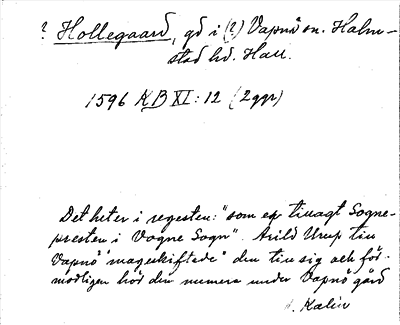 ? Hollegaard, gd i (?) Vapnö sn. Halm-
stad hd. Hall.
1596 KB XI: 12 (2ggr)
Det heter i regesten: "som er tillagt Sogne-
presten i Vogne Sogn". Arild Urup till
Vapnö "mageskiftede" den till sig och för-
modligen hör den numera under Vapnö gård
Kalén